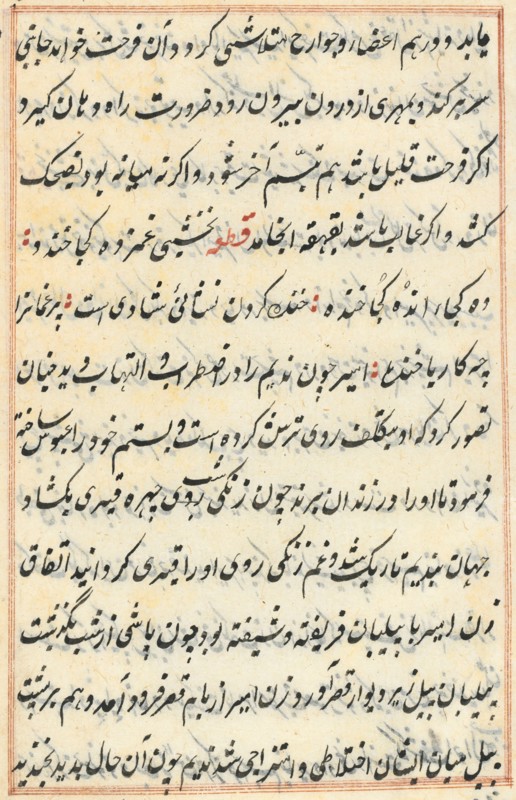 یابد و در هم اعضاء و جوارح متلاشی کردد آن فرحت خواهد جانبی
سر بر کند و بهری از درون بیرون رود ضرورت راه دهان کیرد
اکر فرحت قلیل باشد هم تبسم آخر شود و اکر نه میانه بود بضحک
کشد و اکر غالب باشد بقهقه انجامد قطعه نخشبی غمزده کجا خندد
ده کجا، انده کجا خنده خنده کردن نشانئ شادی است پر غمانرا
چه کار با خنده امیر چون ندیم را در اضطراب و التهاب دید چنان
تصور کرد که او بتکلف روی ترش کرده است و بستم خود را عبوس ساخته
فرمود تا او را در زندان برند چون زنکی شب روی چهره قیری بکشاد
جهان بندیم تاریک شد و غم زنکی روی او را قیری کردانید اتفاق
زن امیر با پیلبان فریفته و شیفته بود چون پاشی از شب بگذشت
پیلبان پیل زیر دیوار قصر آورد زن امیر از بام قصر فرود آمد و هم بر پشت
پیل میان ایشان اختلاطی و امتزاجی شد ندیم چون آن حال بدید بخندید